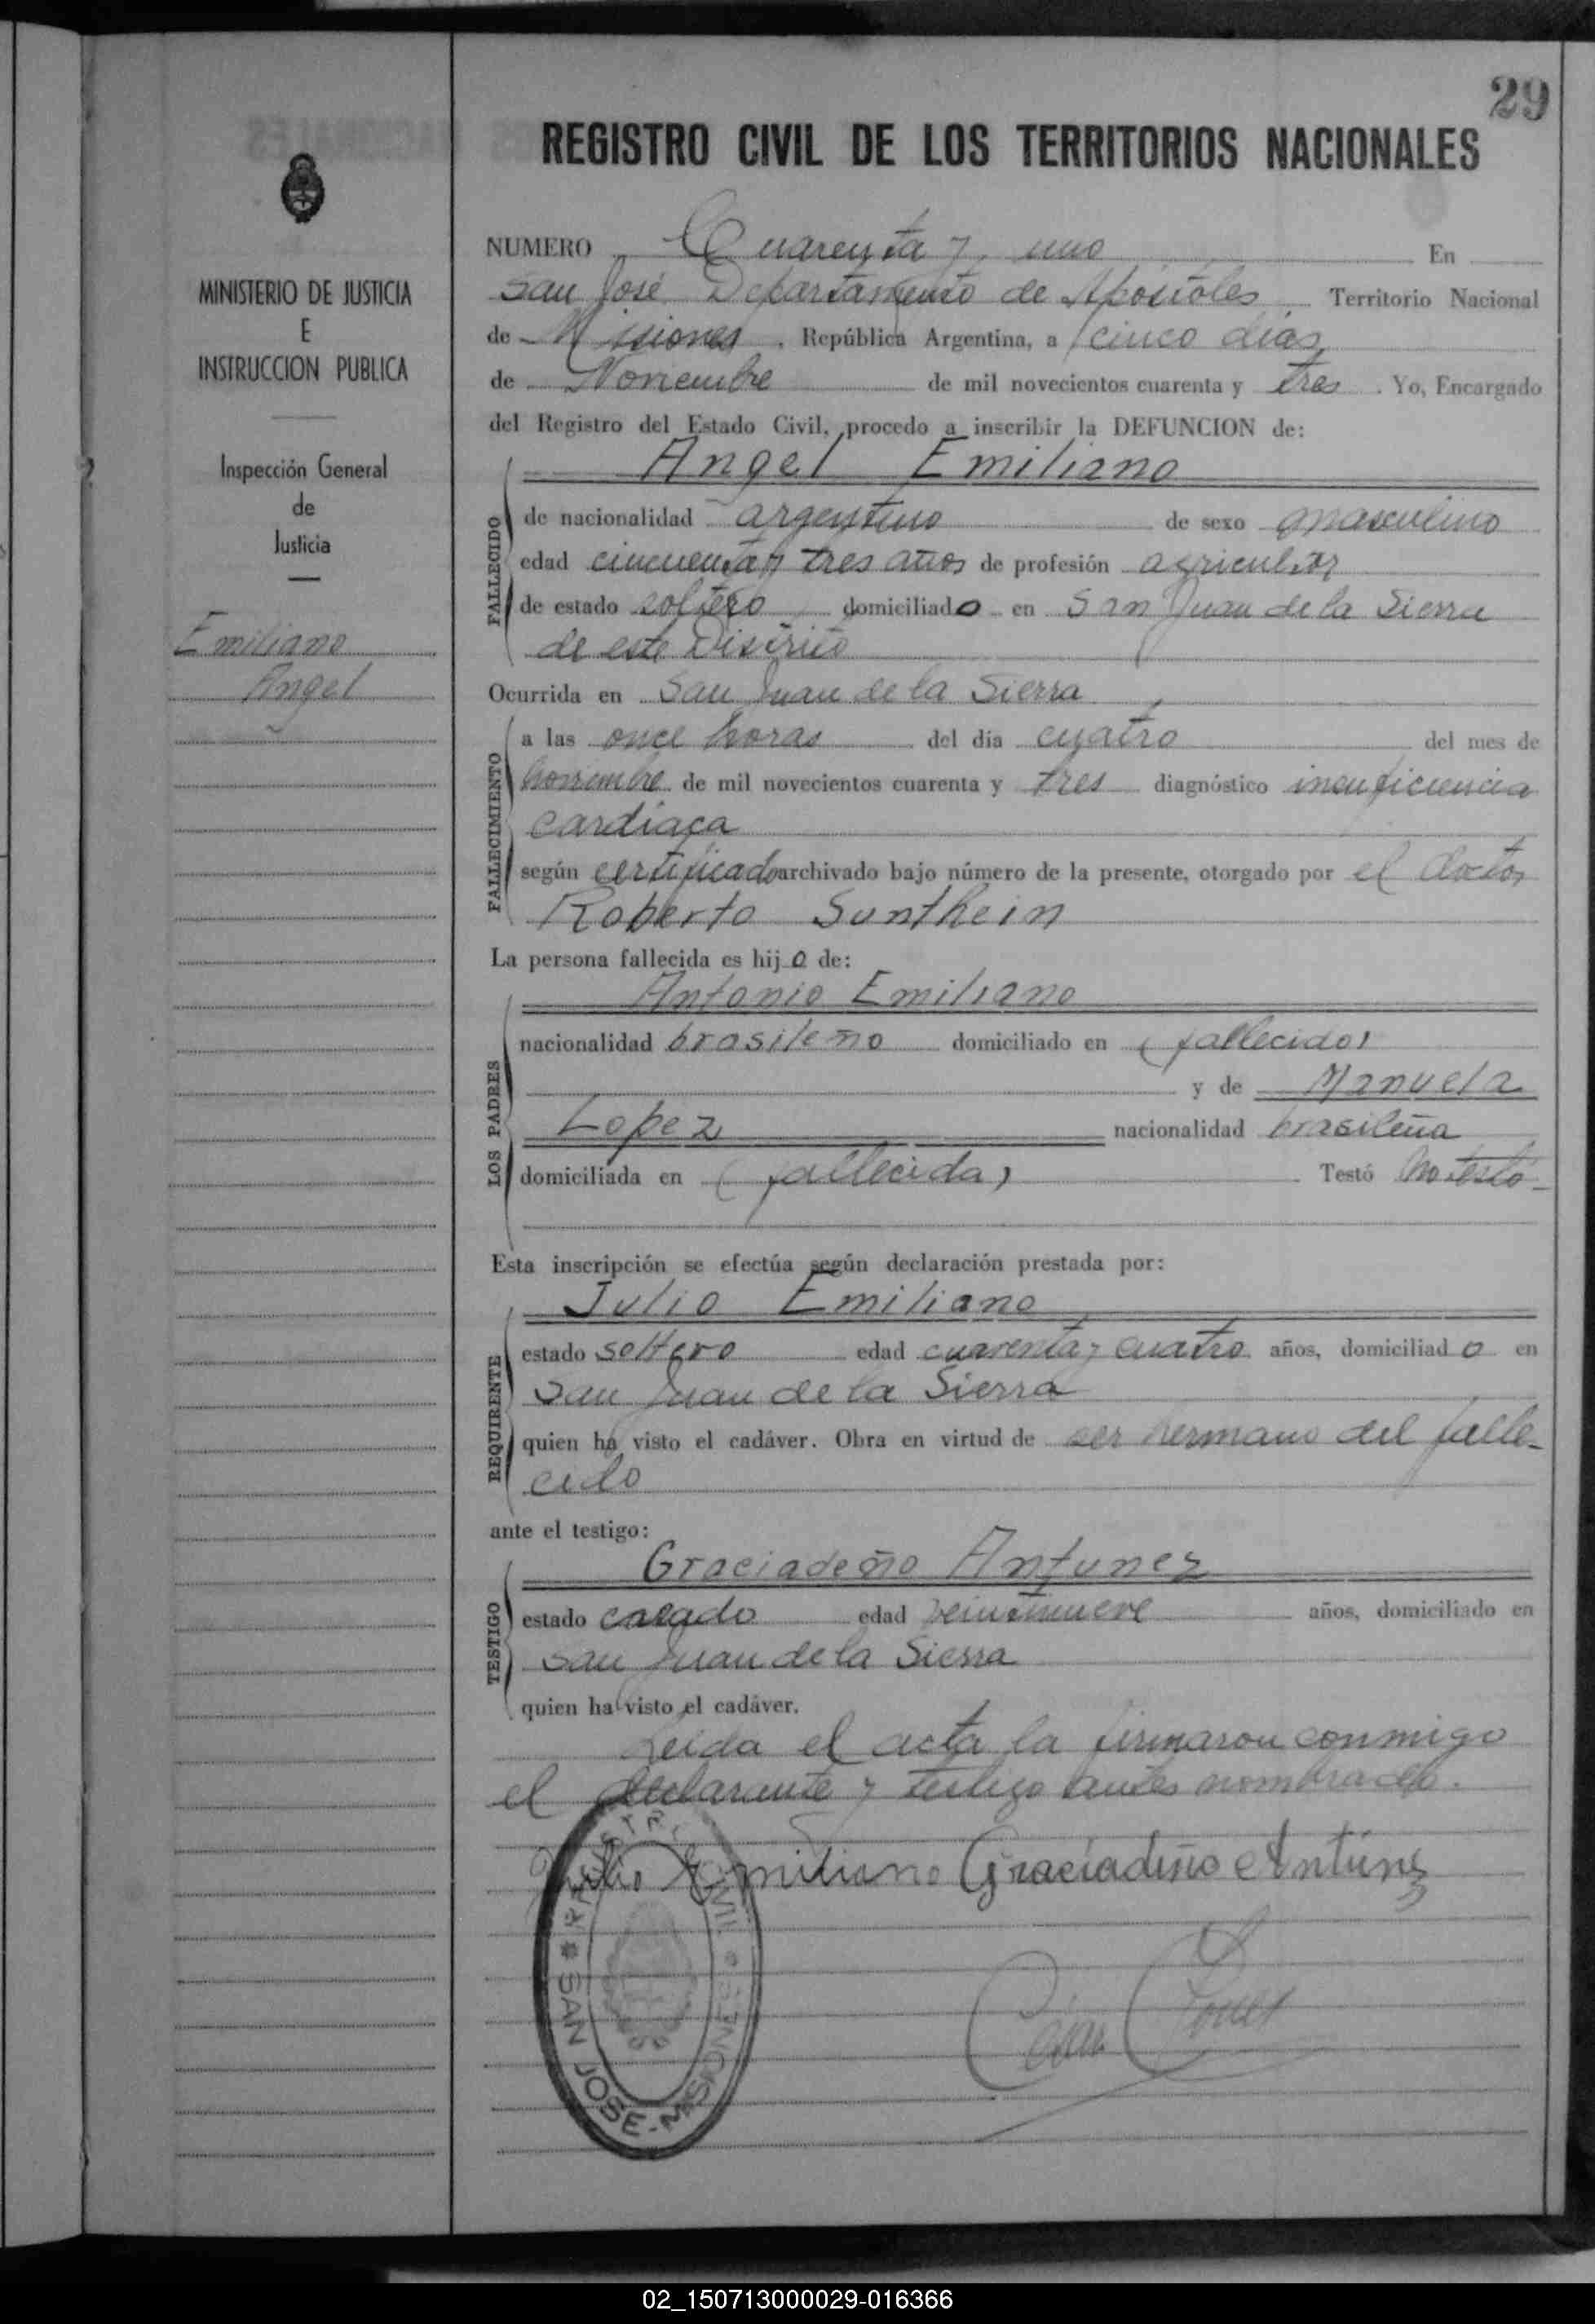 29
REGISTRO CIVIL DE LOS TERRITORIOS NACIONALES
MINISTERIO DE JUSTICIA
E
INSTRUCCION PUBLICA
Inspección General
de
Justicia
Emiliano
Angel
NUMERO Cuarenta y uno En
San José Departamento de Apóstoles Territorio Nacional
de Misiones, República Argentina, a cinco dias
de Noviembre de mil novecientos cuarenta y tres. Yo, Encargado
del Registro del Estado Civil, procedo a inscribir la DEFUNCION de:
Angel Emiliano
FALLECIDO
de nacionalidad argentino de sexo masculino
edad cincuenta y tres años de profesión agricultor
de estado soltero domiciliado en San Juan de la Sierra
de este Distrito
Ocurrida en San Juan de la Sierra
FALLECIMIENTO
a las once horas del día cuatro del mes de
noviembre de mil novecientos cuarenta y tres diagnóstico insuficiencia
cardiaca
según certificado archivado bajo número de la presente, otorgado por el doctor
Roberto Sunthein
La persona fallecida es hijo de:
LOS PADRES
Antonio Emiliano
nacionalidad brasileño domiciliado en (fallecido)
y de Manuela
Lopez nacionalidad brasileña
domiciliada en (fallecida) Testó No testó-
Esta inscripción se efectúa según declaración prestada por:
REQUIRENTE
Julio Emiliano
estado soltero edad cuarenta y cuatro años, domiciliado en
San Juan de la Sierra
quien ha visto el cadáver. Obra en virtud de ser hermano del falle-
cido
ante el testigo:
TESTIGO
Graciadeño Antunez
estado casado edad veintinueve años, domiciliado en
San Juan de la Sierra
quien ha visto el cadáver.
Leida el acta la firmaron conmigo
el declarante y testigo antes nombrado.
Julio Emiliano Graciadiño Antúnez
REGISTRO CIVIL
* SAN JOSE - MISIONES
02_150713000029-016366